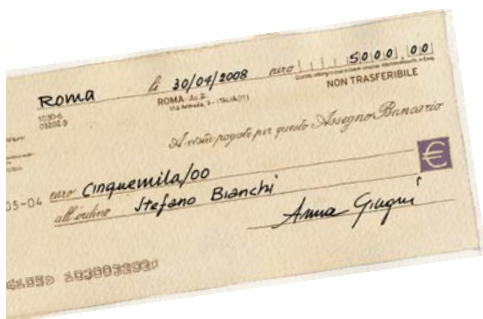 Roma li 30/04/2008 euro 5000,00
ROMA NON TRASFERIBILE
A vista pagate per questo Assegno Bancario
€
05-04 euro Cinquemila/00
all'ordine Stefano Bianchi
Anna Giugni